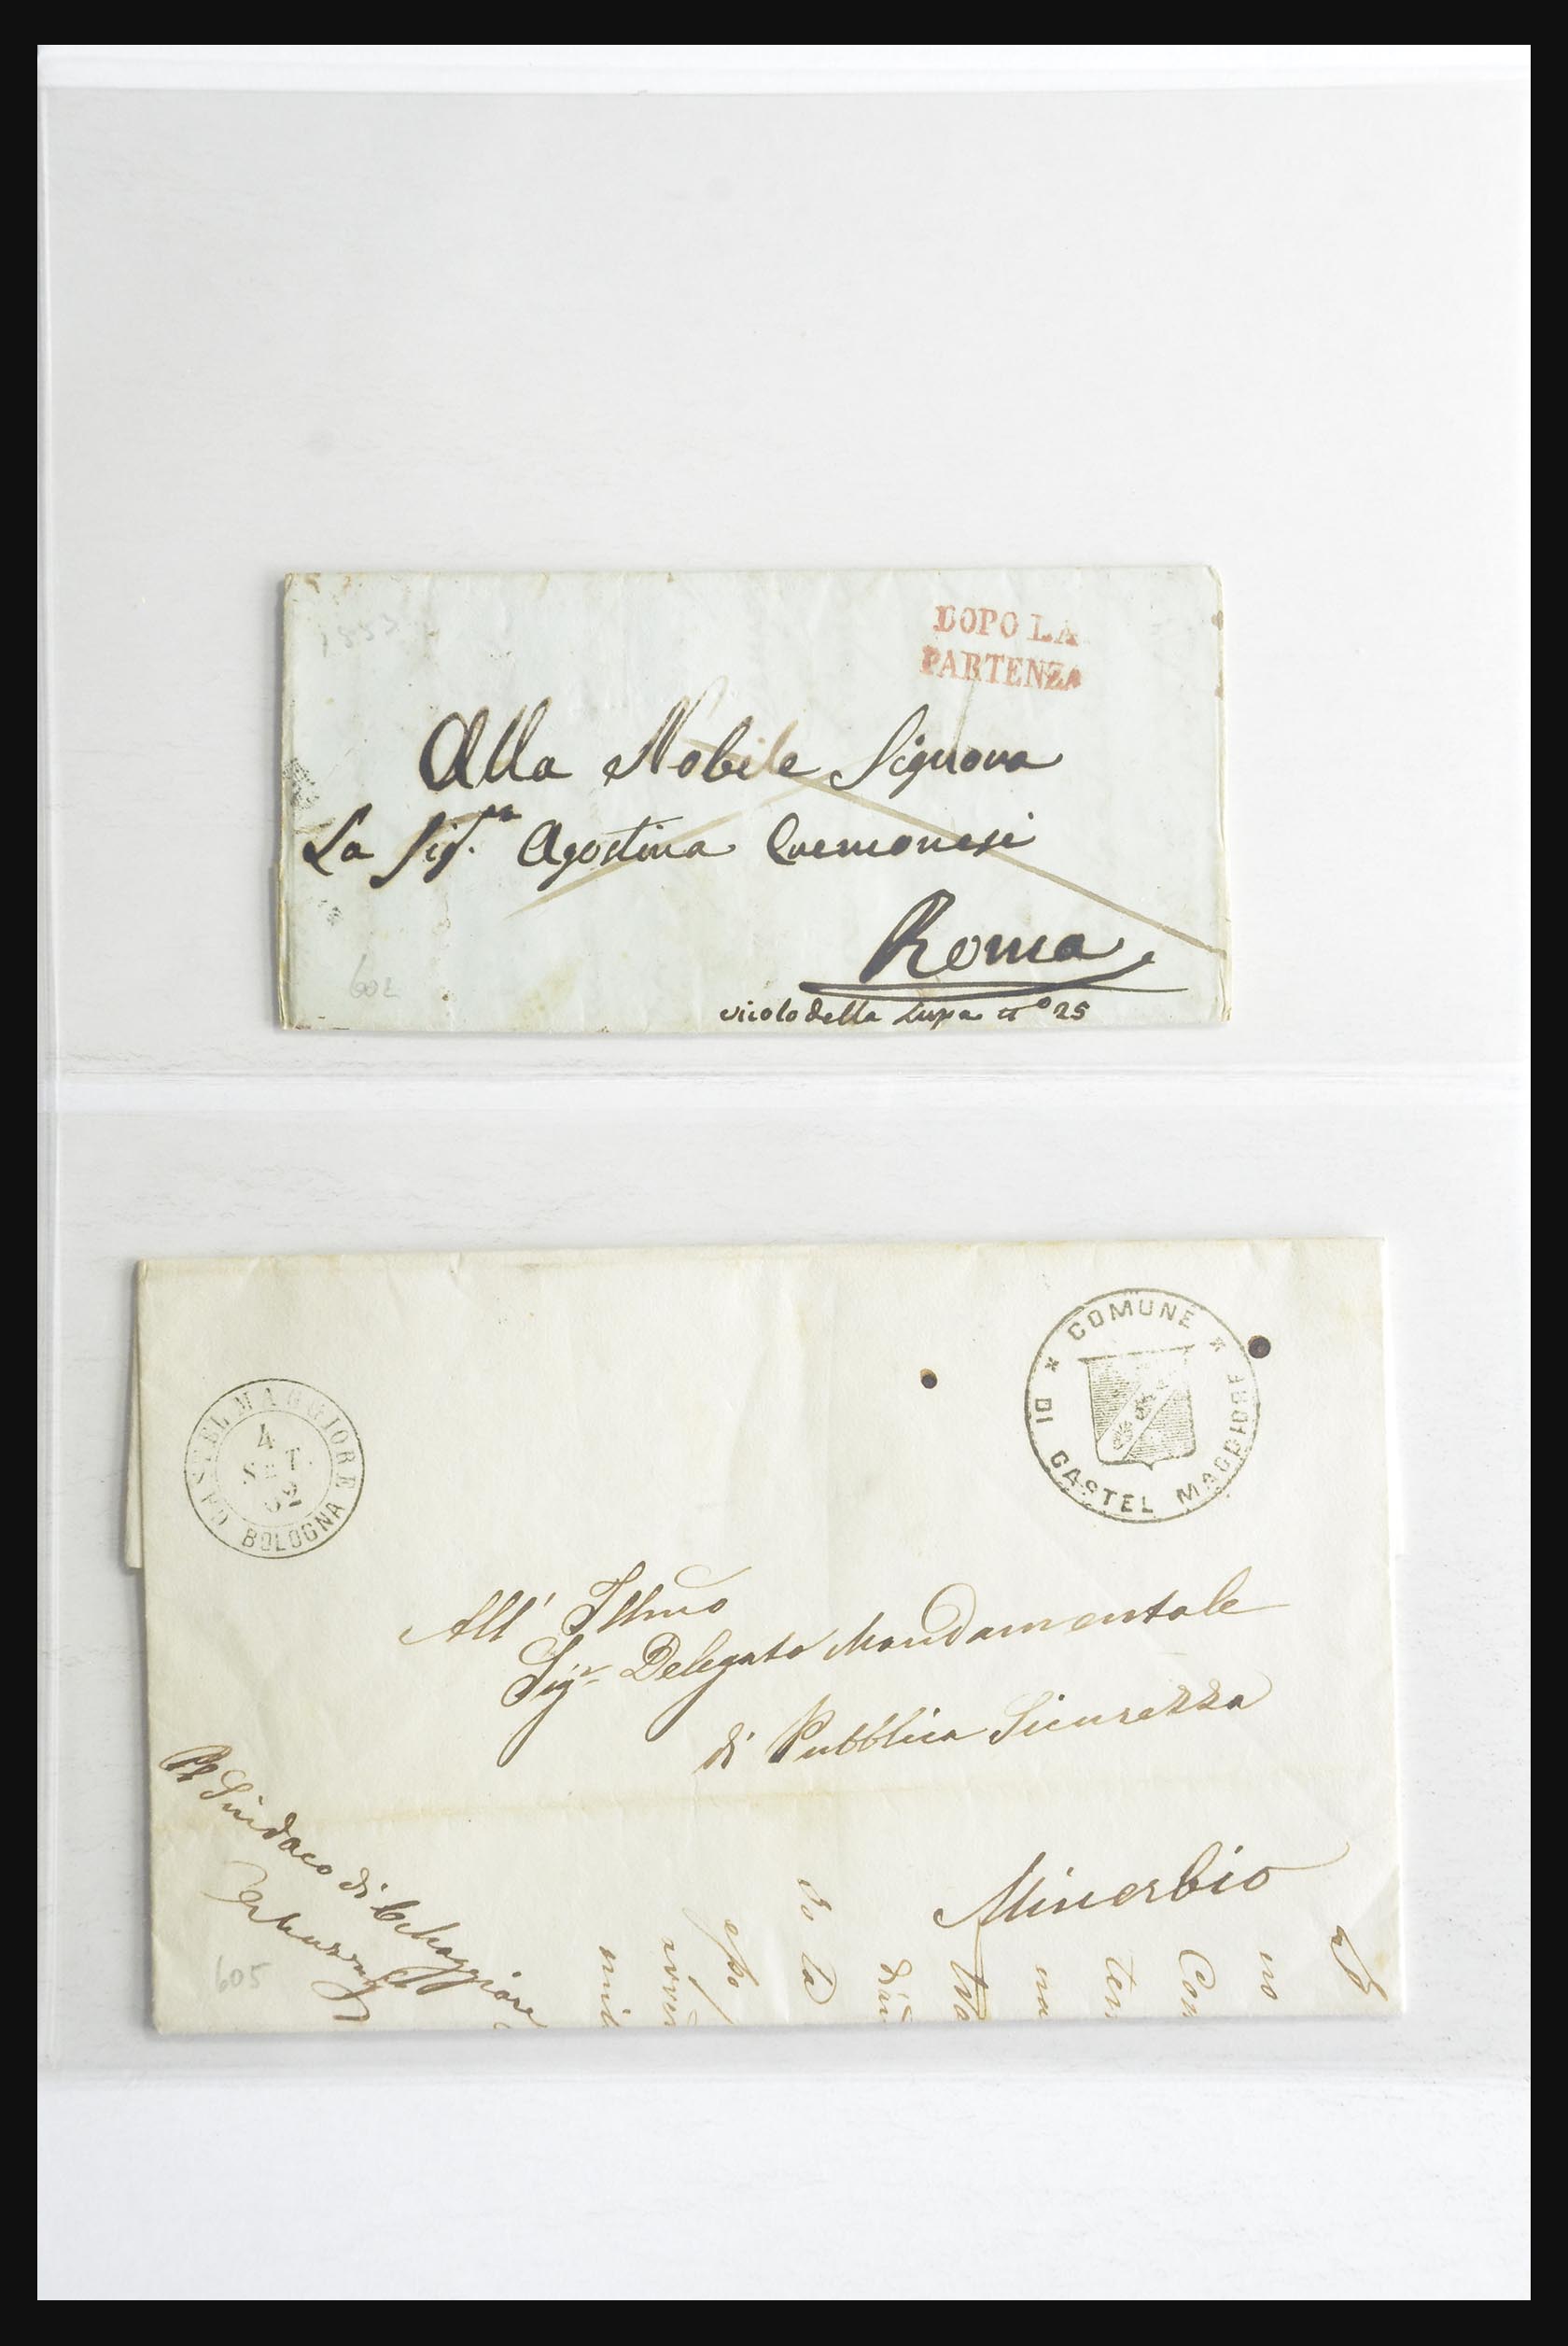 DOPO LA
PARTENZA
Alla Nobile Signora
La Sig.ra Agostina Cremonesi
Roma
vicolo della Lupa n° 25
602
COMUNE
DI CASTEL MAGGIORE
CASTEL MAGGIORE
4
SET
BOLOGNA
All' Illmo
Sigr Delegato Mandamentale
di Pubblica Sicurezza
Minerbio
Sindaco di C. Maggiore
605
no
Con
ten
na
tra